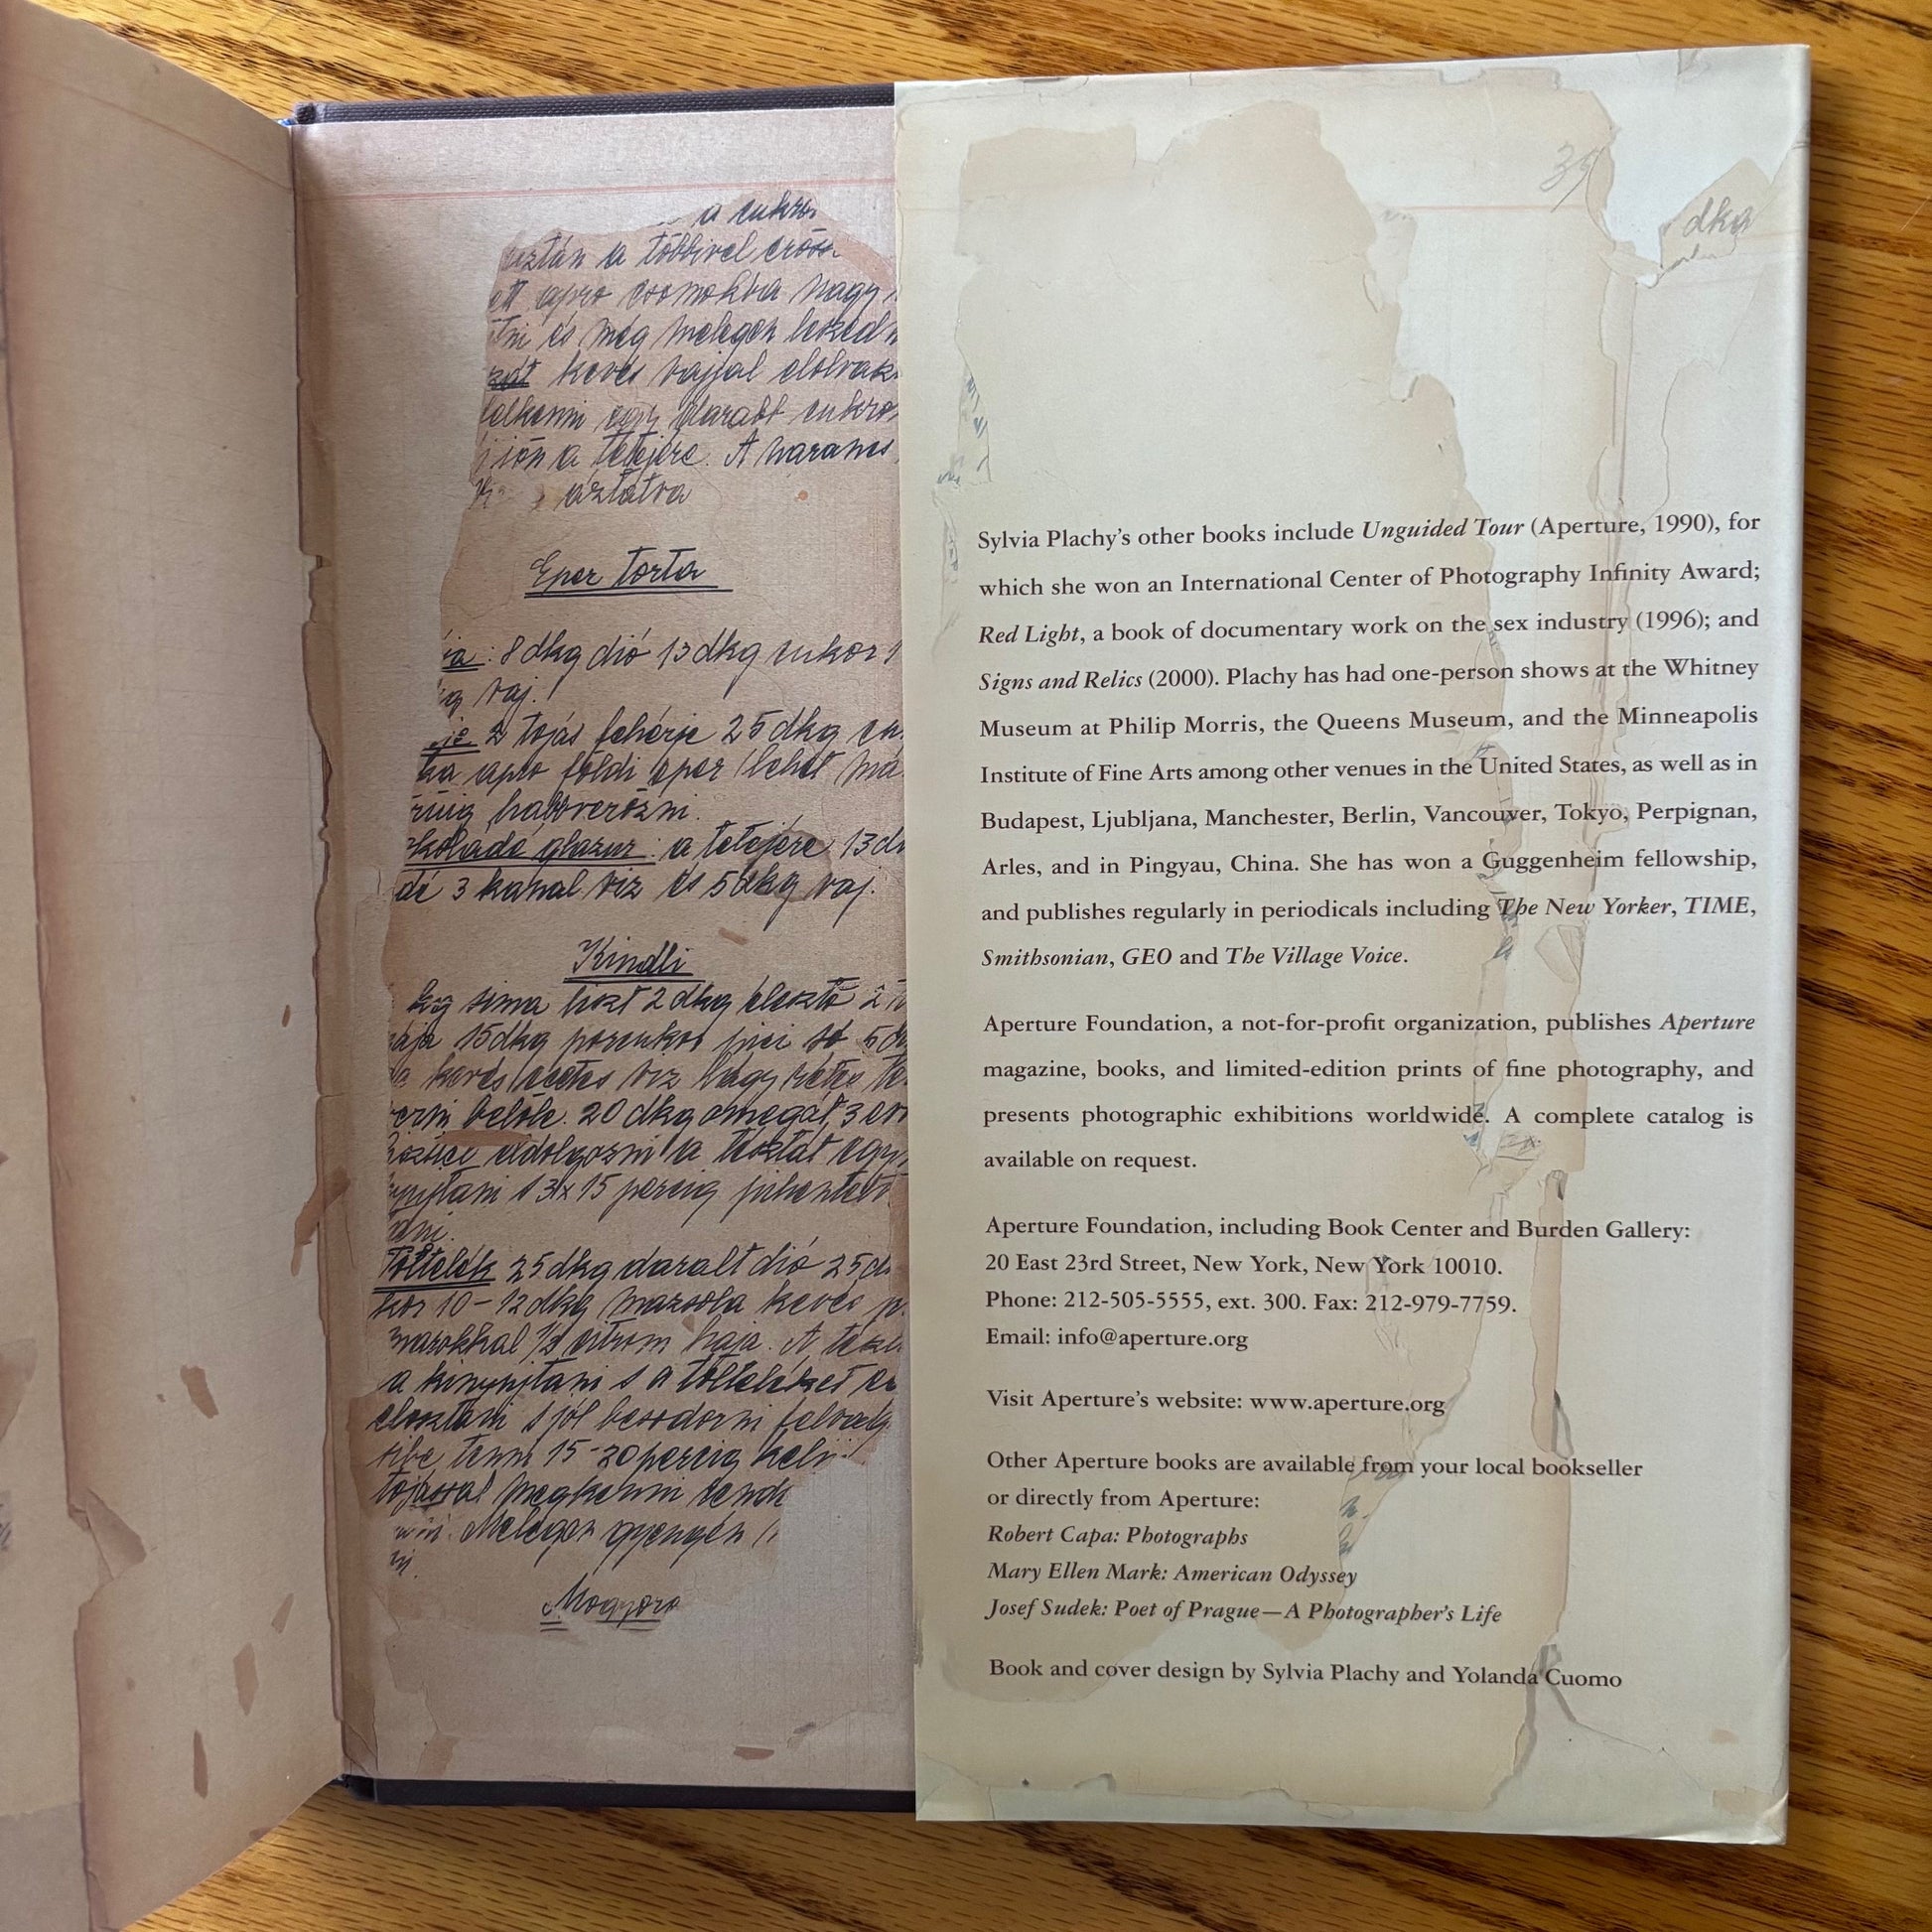 a cukro
aztán a többivel erőss
ett apro csomokba nagy
tni és még melegen leszed
keves vajjal elolvasz
egy darabb cukro
jön a tetejére. A narancs
áztatva
Eper torta
ia: 8 dkg dió 13 dkg cukor 1
g vaj.
2 tojás fehérje 25 dkg cu
ka apro földi eper (lehet má
habbverözni.
kolàdé glazur: a tetejére 13 d
dé 3 kanal viz és 5 dkg vaj.
Kindli
kg sima liszt 2 dkg éleszto 2 t
aja 15 dkg porcukor pici só 5 d
keves ecetes viz hágy rétes te
verni belöle. 20 dkg omegát, 3 ev
eldolgozni a tésztát egy
nyujtani s 3x 15 percig pihentet
dni.
Töltelék 25 dkg daralt dió 25 d
kor 10-12 dkg mazsola keves p
marokkal 1/2 citrom haja. A tész
a kinyujtani s a tölteléket el
elosztani s jól becsodorni
sibe tenni 15-20 percig keln
tojással megkenni
Melegen gyengén
ni.
Mogyoro
39
dkg
Sylvia Plachy's other books include Unguided Tour (Aperture, 1990), for
which she won an International Center of Photography Infinity Award;
Red Light, a book of documentary work on the sex industry (1996); and
Signs and Relics (2000). Plachy has had one-person shows at the Whitney
Museum at Philip Morris, the Queens Museum, and the Minneapolis
Institute of Fine Arts among other venues in the United States, as well as in
Budapest, Ljubljana, Manchester, Berlin, Vancouver, Tokyo, Perpignan,
Arles, and in Pingyau, China. She has won a Guggenheim fellowship,
and publishes regularly in periodicals including The New Yorker, TIME,
Smithsonian, GEO and The Village Voice.
Aperture Foundation, a not-for-profit organization, publishes Aperture
magazine, books, and limited-edition prints of fine photography, and
presents photographic exhibitions worldwide. A complete catalog is
available on request.
Aperture Foundation, including Book Center and Burden Gallery:
20 East 23rd Street, New York, New York 10010.
Phone: 212-505-5555, ext. 300. Fax: 212-979-7759.
Email: info@aperture.org
Visit Aperture's website: www.aperture.org
Other Aperture books are available from your local bookseller
or directly from Aperture:
Robert Capa: Photographs
Mary Ellen Mark: American Odyssey
Josef Sudek: Poet of Prague—A Photographer's Life
Book and cover design by Sylvia Plachy and Yolanda Cuomo